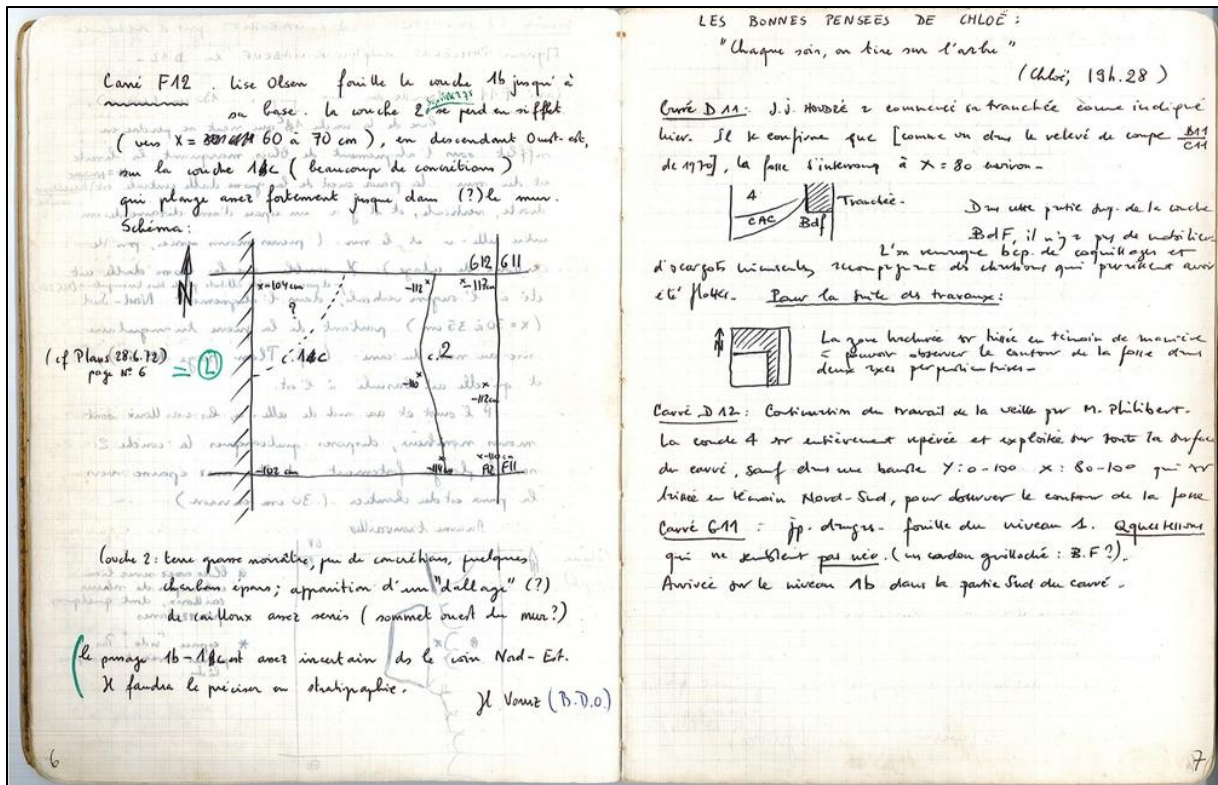 Carré F12 . Lise Olsen fouille la couche 1b jusqu'à
sa base. La couche 2 se perd en sifflet
( vers X = 60 à 70 cm ), en descendant Ouest-est,
sur la couche 1c ( beaucoup de concrétions )
qui plonge assez fortement jusque dans (?) le mur.
Schéma :
G12 G11
N
x-104cm
-112x
x-117cm
?
c. 1c
c. 2
(cf Plans 28.6.72)
page N° 6
= L
-110x
x
-112cm
-102 cm
-114
x-110cm
F12 F11
Couche 2 : terre grasse noirâtre, peu de concrétions, quelques
charbons épars ; apparition d'un "dallage" (?)
de cailloux assez serrés ( sommet ouest du mur ?)
le passage 1b - 1c est assez incertain ds le coin Nord-Est.
Il faudra le préciser en stratigraphie.
(B.D.O.)
6
LES BONNES PENSEES DE CHLOË :
"Chaque soir, on tire sur l'arbre"
(Chloë, 19h.28)
Carré D 11 : J.J. HOUDRÉ a commencé sa tranchée comme indiqué
hier. Il se confirme que [comme vu dans le relevé de coupe D11
C11
de 1970], la fosse s'interromp à X = 80 environ -
4
CAC
BdF
Tranchée -
Dans cette partie sup. de la couche
BdF, il n'y a pas de mobilier.
L'on remarque bcp. de coquillages et
d'escargots minuscules accompagnant des charbons qui paraissent avoir
été flottés. Pour la suite des travaux :
N
La zone hachurée est laissée en témoin de manière
à pouvoir observer le contour de la fosse dans
deux axes perpendiculaires -
Carré D 12 : Continuation du travail de la veille par M. Philibert.
La couche 4 est entièrement repérée et exploitée sur toute la surface
du carré, sauf dans une bande Y : 0-100 x : 80-100 qui est
laissée en témoin Nord-Sud, pour observer le contour de la fosse
Carré G11 : jp. - fouille du niveau 1. Qques tessons
qui ne semblent pas néo. (un cordon guilloché : B.F ?).
Arrivée sur le niveau 1b dans la partie Sud du carré -
7